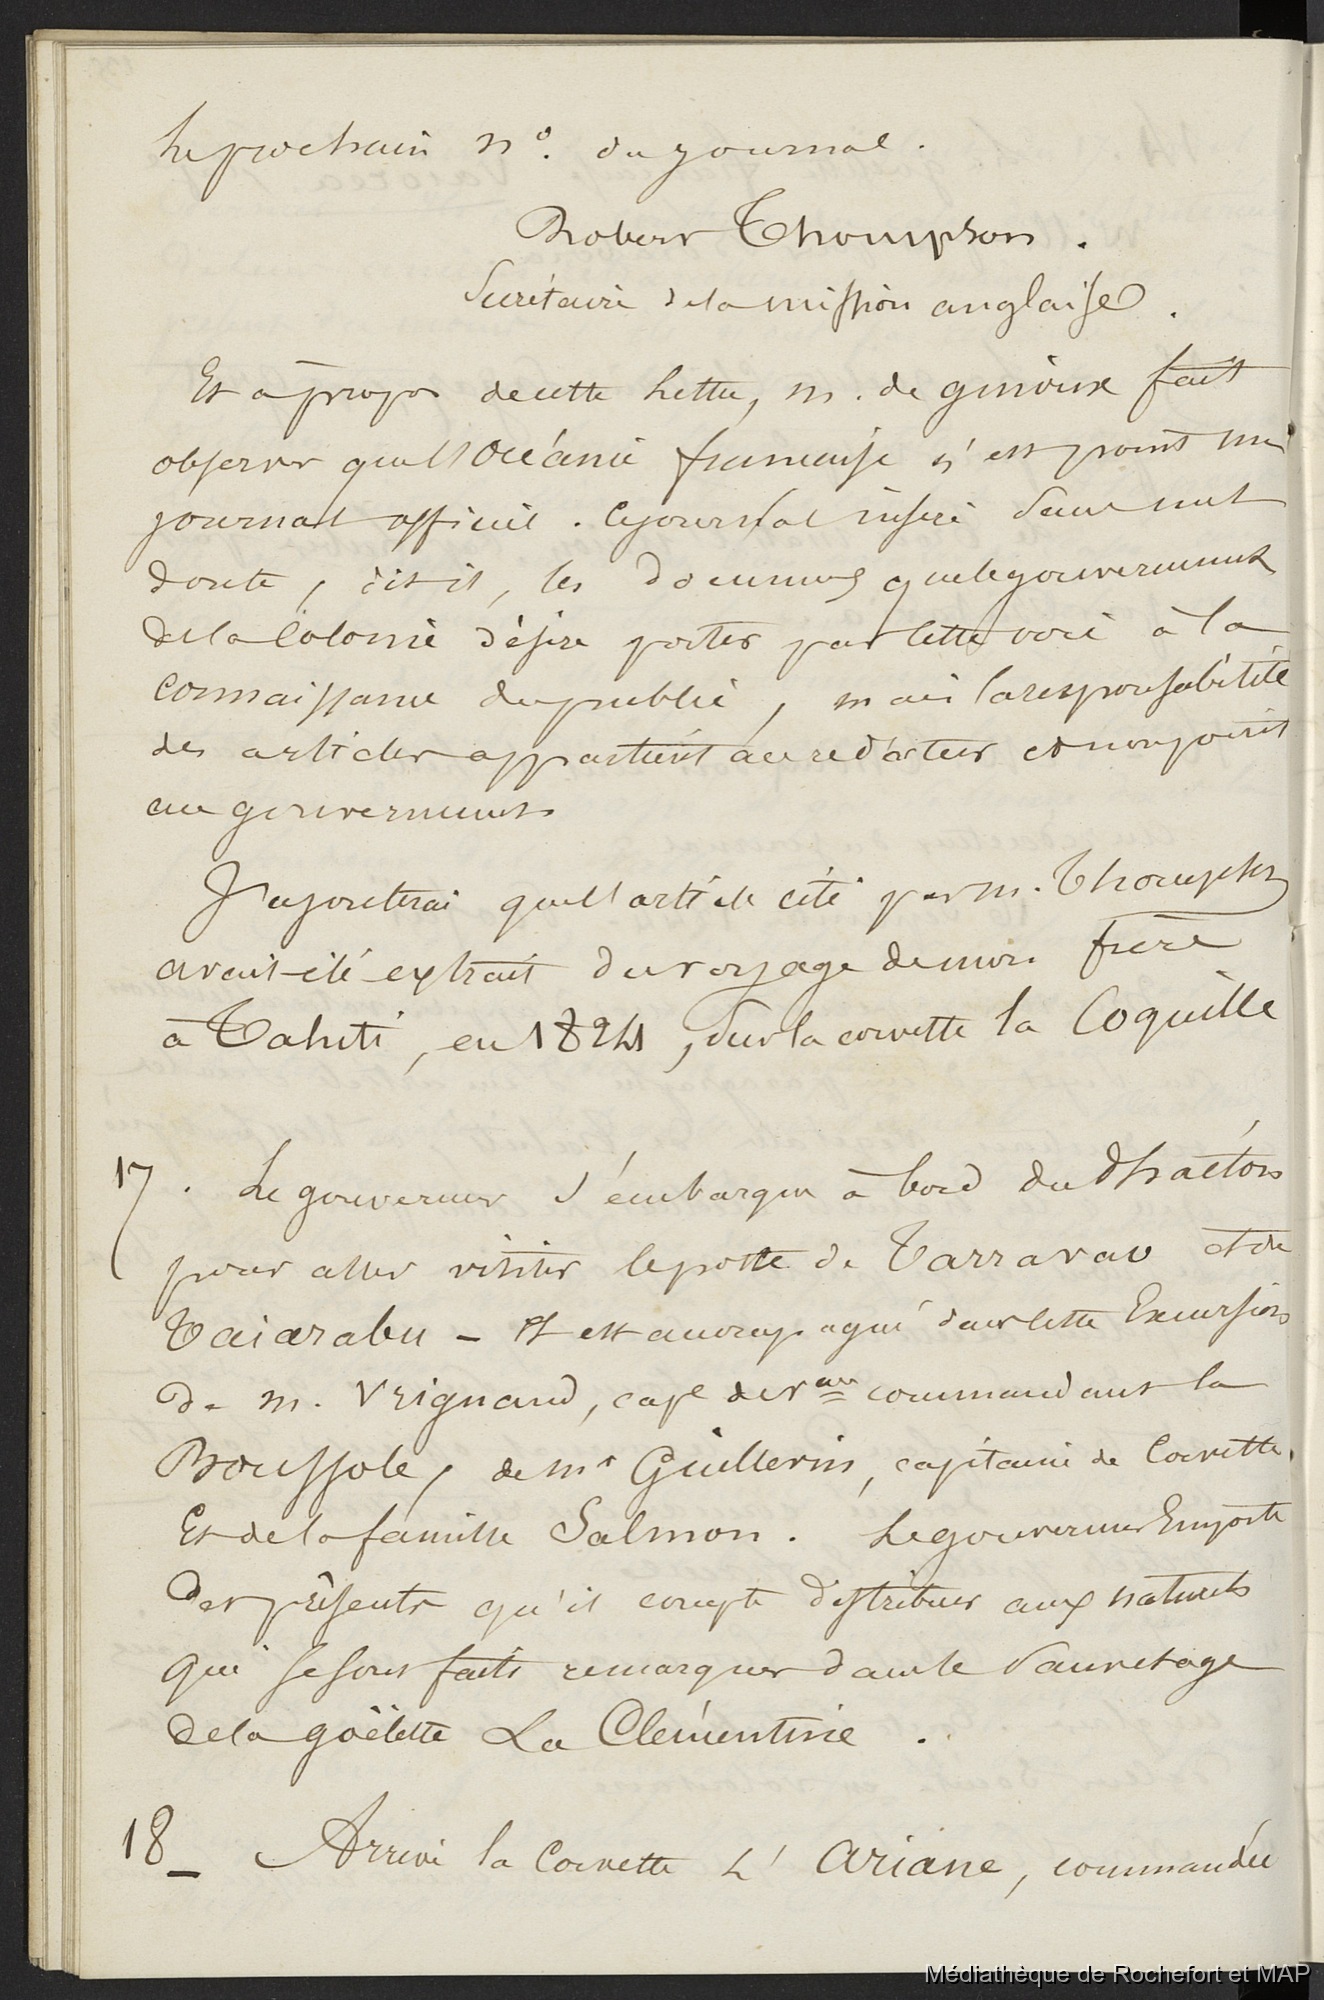 le prochain n°. du journal.
Robert Thompson.
Secrétaire de la mission anglaise.
Et à propos de cette lettre, m. de ginoux fait
observer que l'Océanie francaise n'est point un
journal officiel. Ce journal insère sans nul
doute, dit il, les documens que le gouvernement
de la Colonie désire porter par cette voie à la
connaissance du public, mais la responsabilité
des articles appartient au rédacteur et non point
au gouvernement
J'ajouterai que l'article cité par m. Thompson
avait été extrait du voyage de mon frère
à Tahiti, en 1824, sur la corvette la Coquille
17. Le gouverneur s'embarque à bord du Phaéton
pour aller visiter le poste de Tarravao et de
Taiarabu - Il est accompagné dans cette Excursion
de m. Vrignaud, cap.e de v.au commandant la
Boussole, de mr Guillevin, capitaine de Corvette,
Et de la famille Salmon. Le gouverneur Emporte
des présents qu'il compte distribuer aux naturels
qui se sont faits remarquer dans le sauvetage
de la goëlette La Clémentine.
18_ Arrive la Corvette L'Ariane, commandée
Médiathèque de Rochefort et MAP